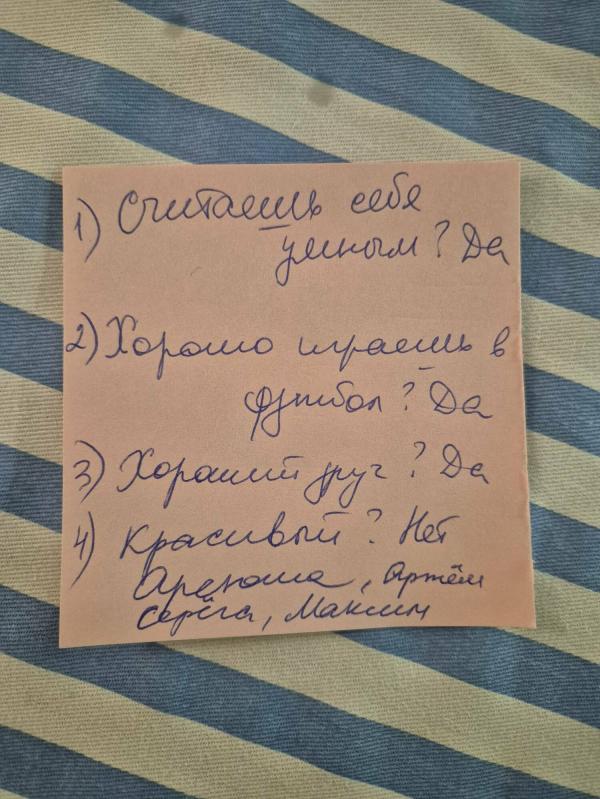 1) Считаешь себя
умным? Да
2) Хорошо играешь в
футбол? Да
3) Хороший друг? Да
4) Красивый? Нет
Артём
Серёга, Максим